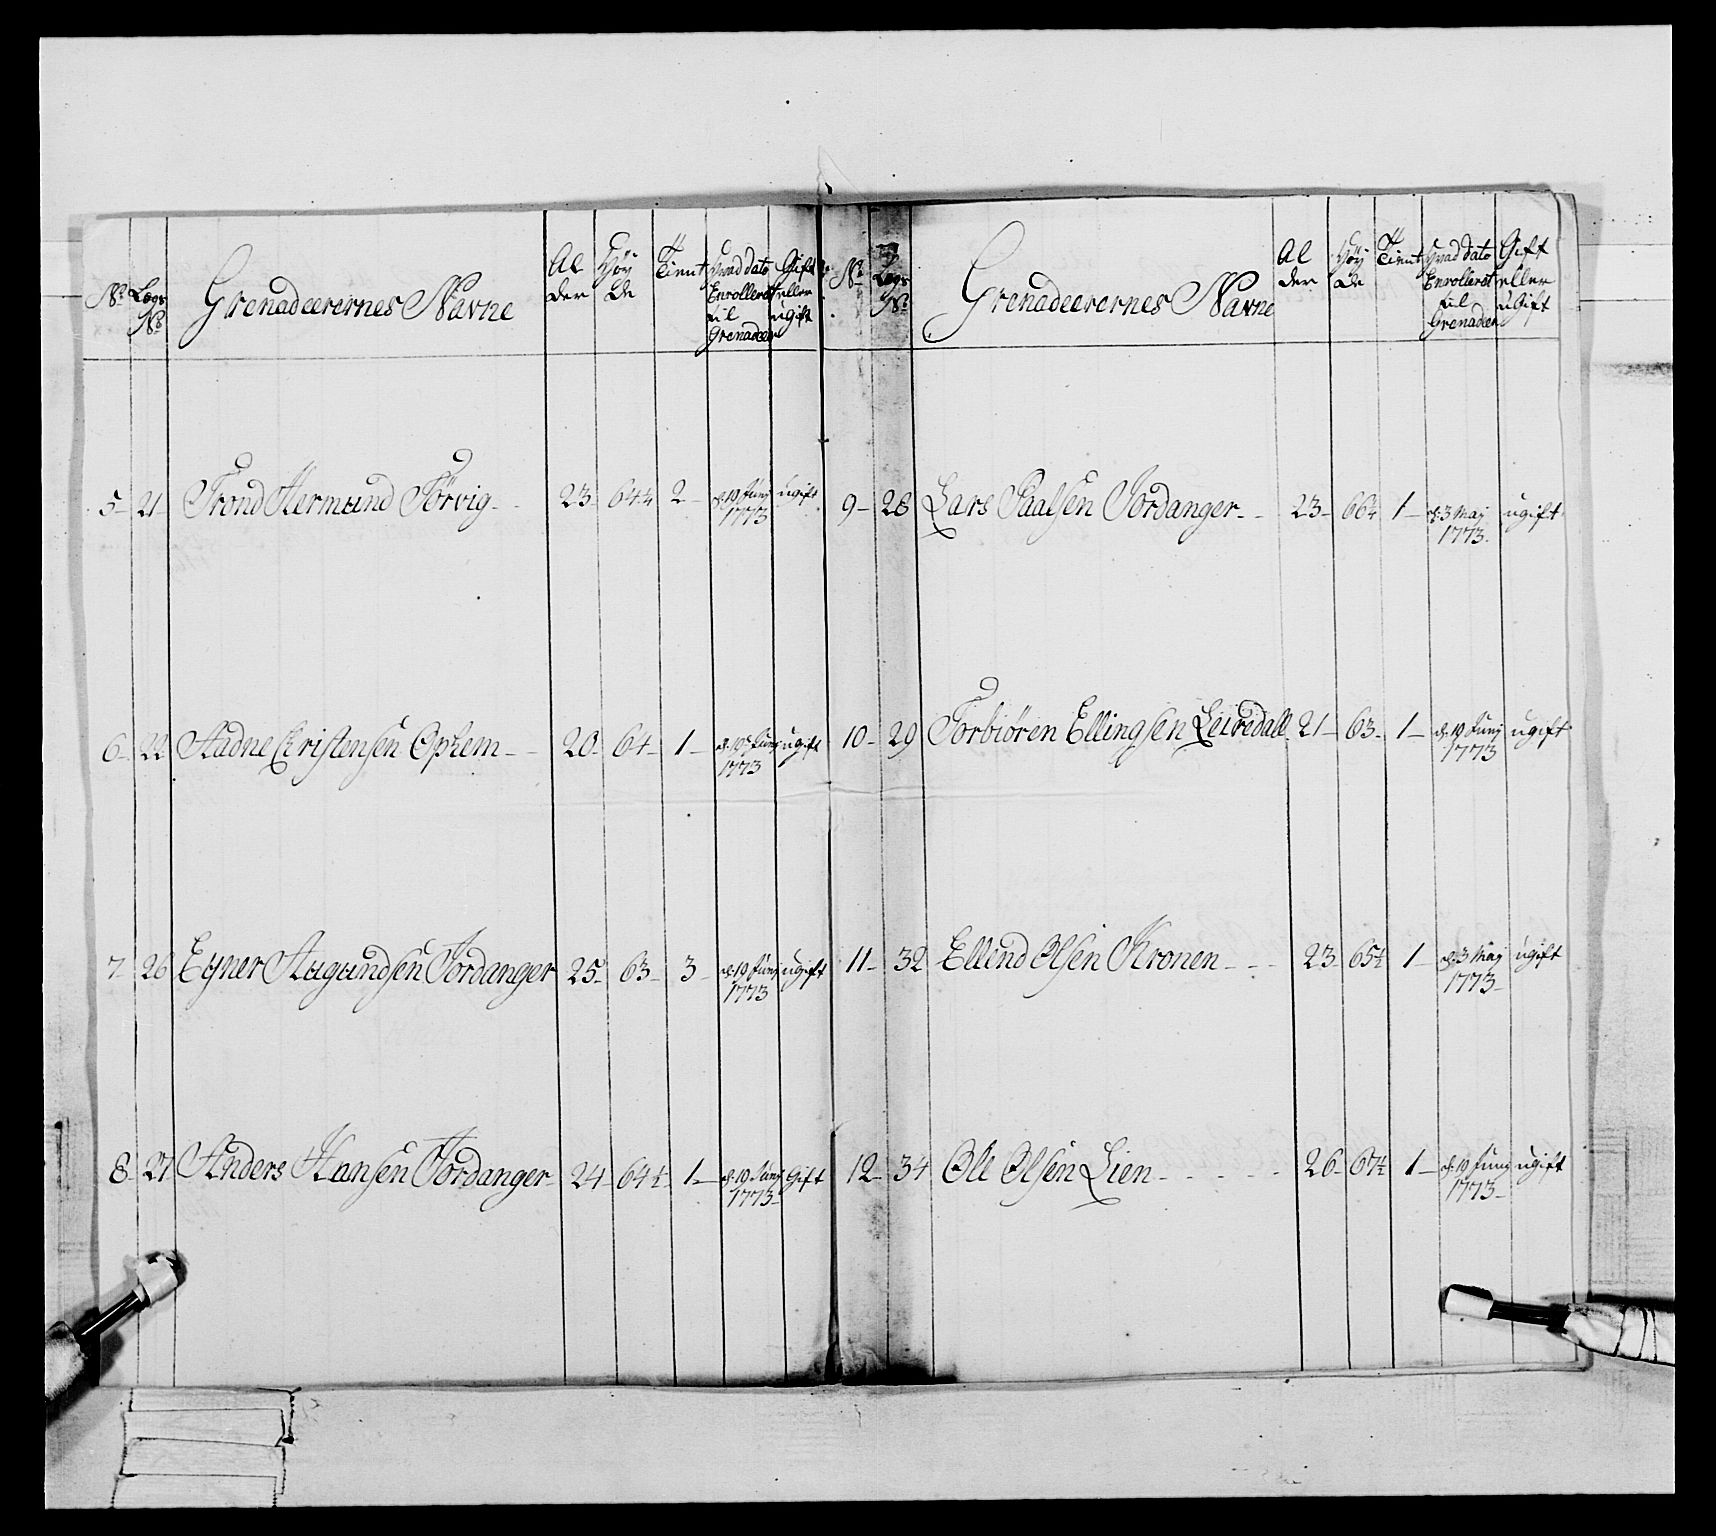 No Lægs No Grenadeerernes Navne Al der Høy de Tient Hvad dato Enrolleret til Grenadeer Gift eller ugift
5 21 Trond Hermund Tørvig 23 64¼ 2 d: 19 Junj 1773 ugift
6 22 Aadne Christensen Ophem 20 64 1 d. 19 Junj 1773 ugift
7 26 Eyner Augundsen Jordanger 25 63 3 d: 19 Junj 1773 ugift
8 27 Anders Hansen Jordanger 24 64½ 1 d. 19 Junj 1773 Gift
No Lægs No Grenadeerernes Navne Al der Høy de Tient Hvad dato Enrolleret til Grenadeer Gift eller uGift
9 28 Lars Paalsen Jordanger 23 66¼ 1 d: 3 Maj 1773 ugift
10 29 Torbiören Ellingsen Leiredall 21 63 1 d. 19 Junj 1773 ugift
11 32 Ellend Olsen Kronen 23 65½ 1 d: 3 Maj 1773 ugift
12 34 Ole Olsen Lien 26 67½ 1 d. 19 Junj 1773 ugift